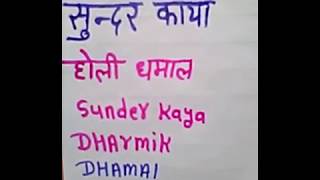 सुन्दर काया
होली धमाल
Sunder Kaya
DHArmik
DHAMAL